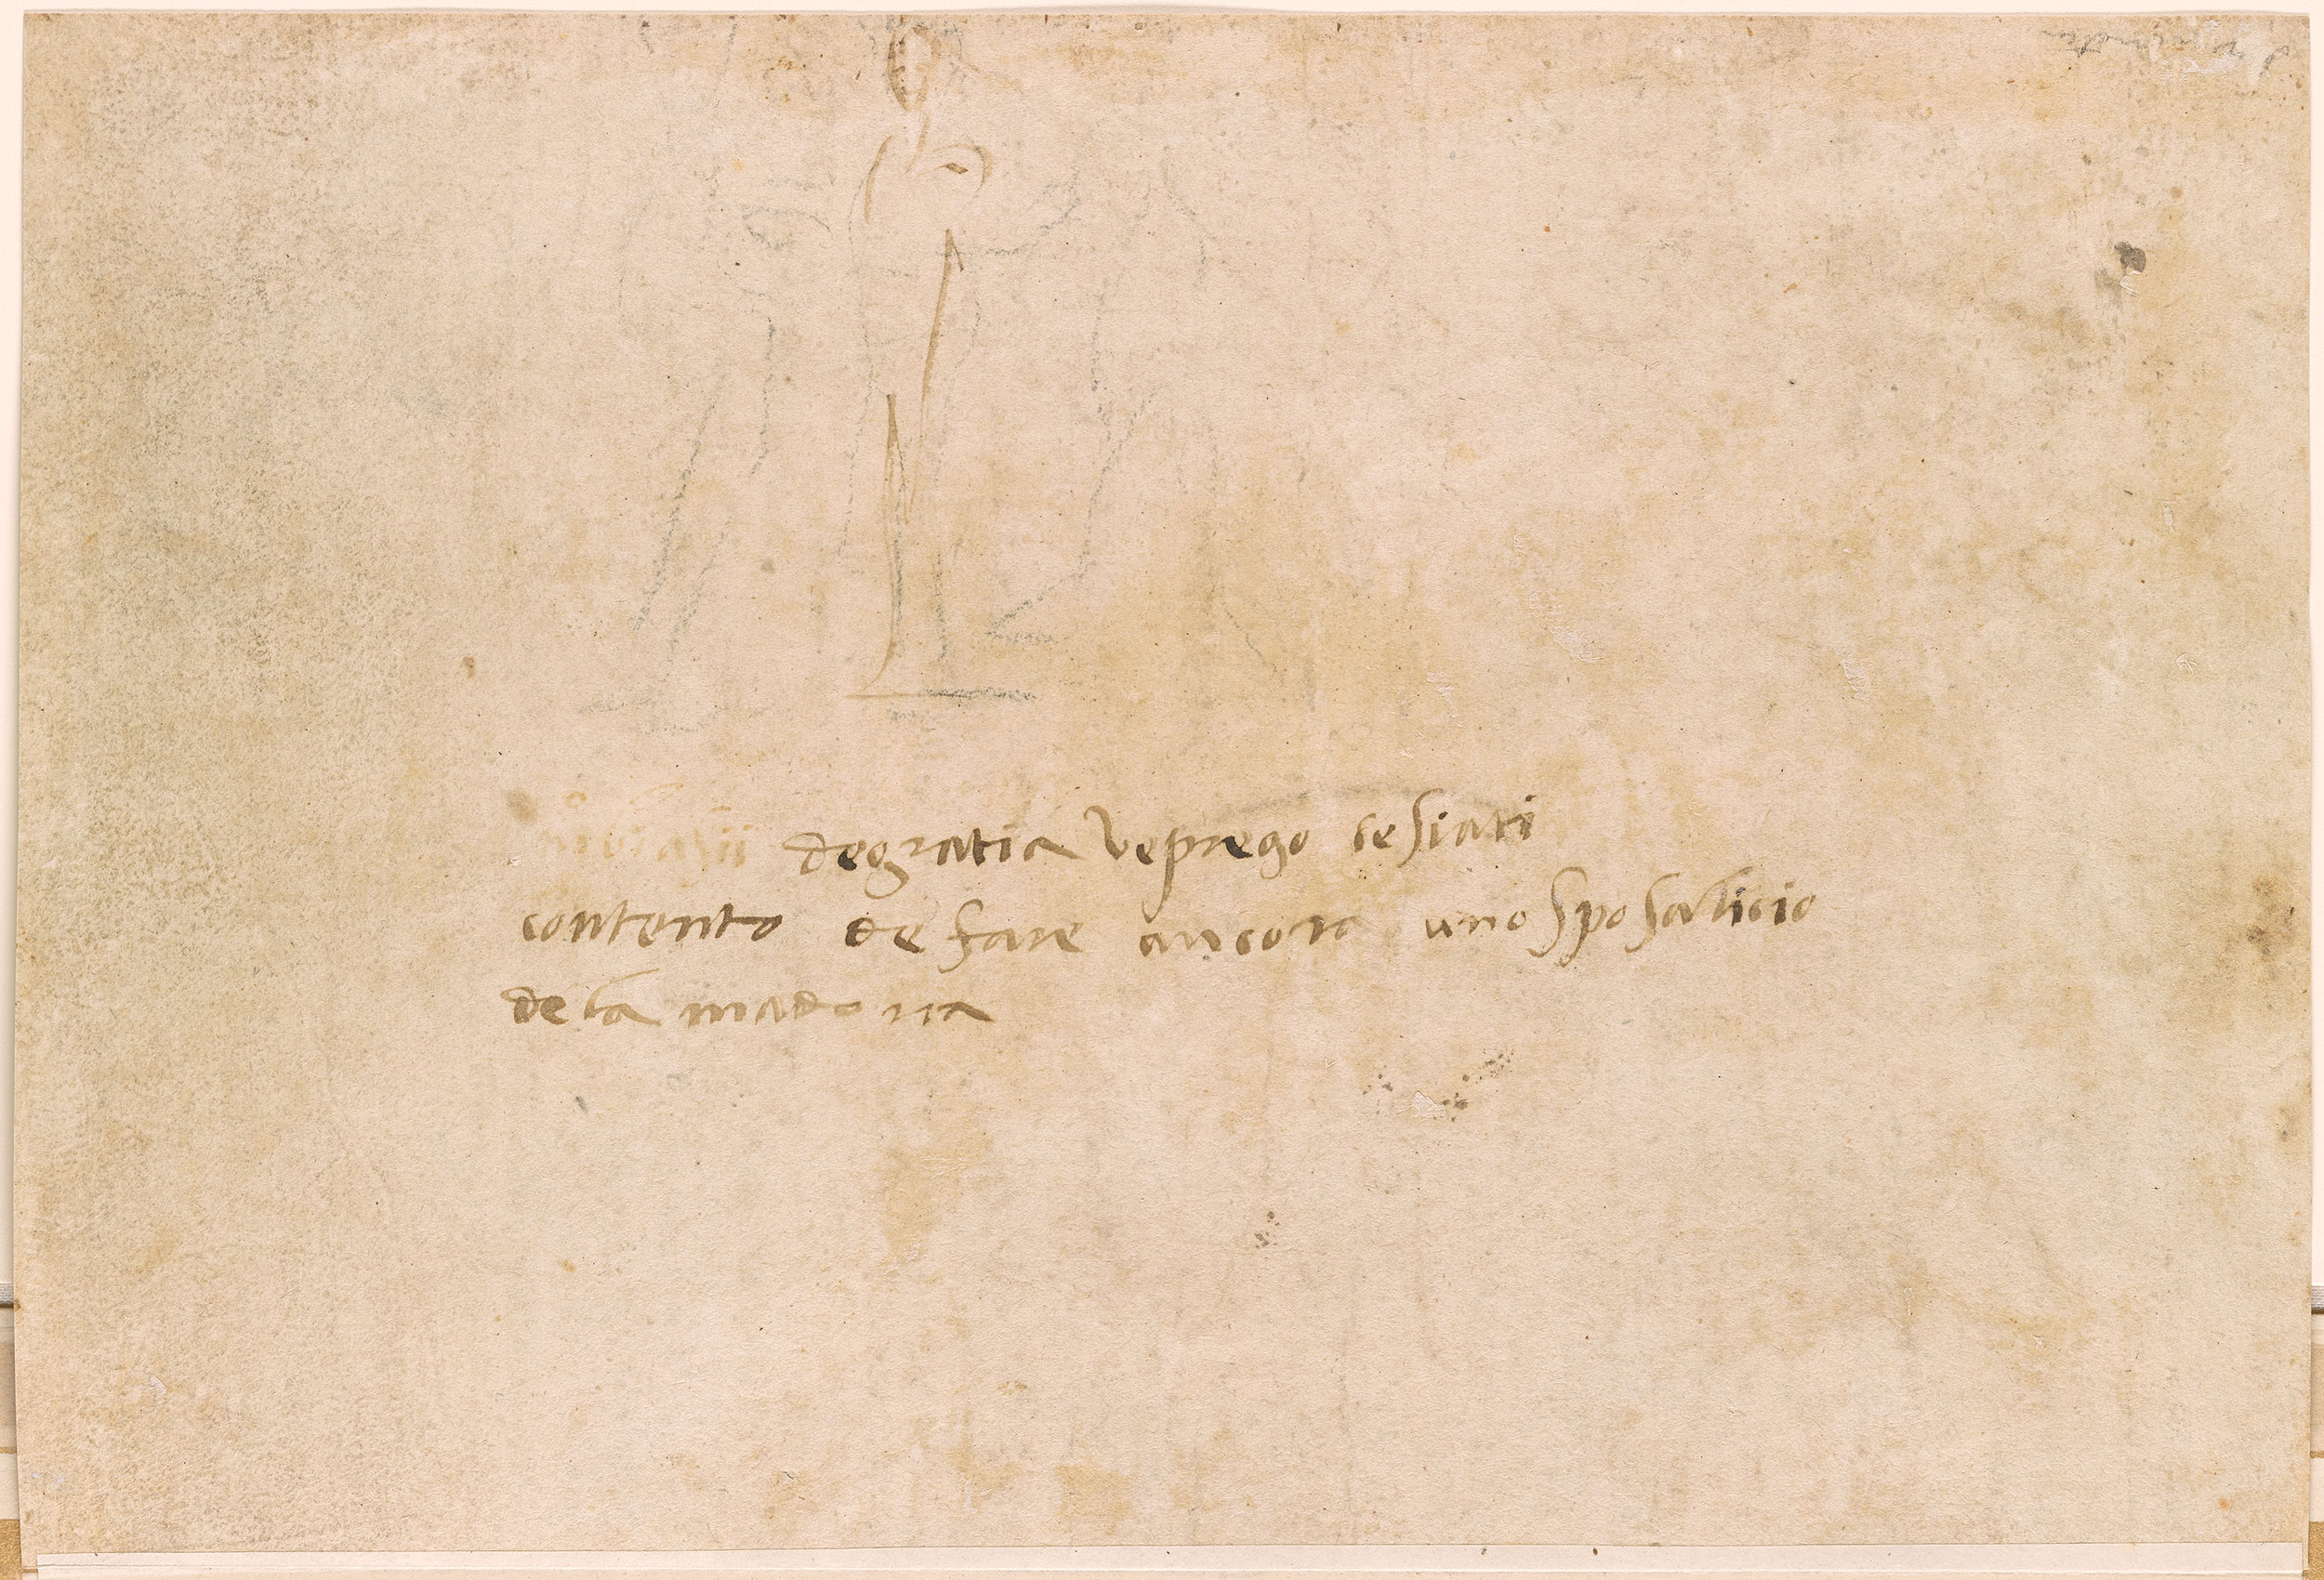 degratia veprego se siati
contento de fare ancora uno sposalicio
de la madona